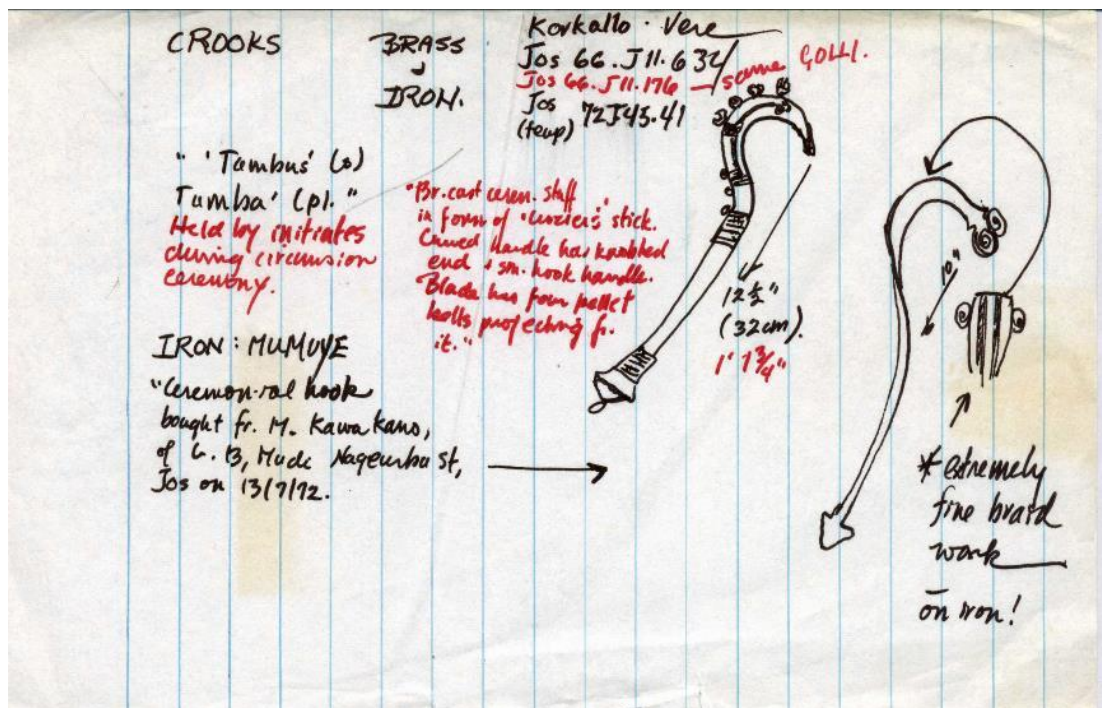 CROOKS
BRASS
+
IRON.
Korkallo · Vere
Jos 66. J11. 632/
Jos 66. J11. 176 — same GOLLI.
Jos 72J43.41
(temp)
" 'Tambus' (s)
Tumba' (pl."
Held by initiates
during circumsion
ceremony.
"Br. cast cerem. staff
in form of 'crozier's' stick.
Curved handle has knobbed
end + sm. hook handle.
Blade has four pellet
bells projecting fr.
it."
12 1/2"
(32cm).
1' 1 3/4"
10"
IRON: MUMUYE
"Ceremon-ial hook
bought fr. M. Kawa Kano,
of G. 13, Jos on 13/7/72.
* extremely
fine braid
work
on iron!